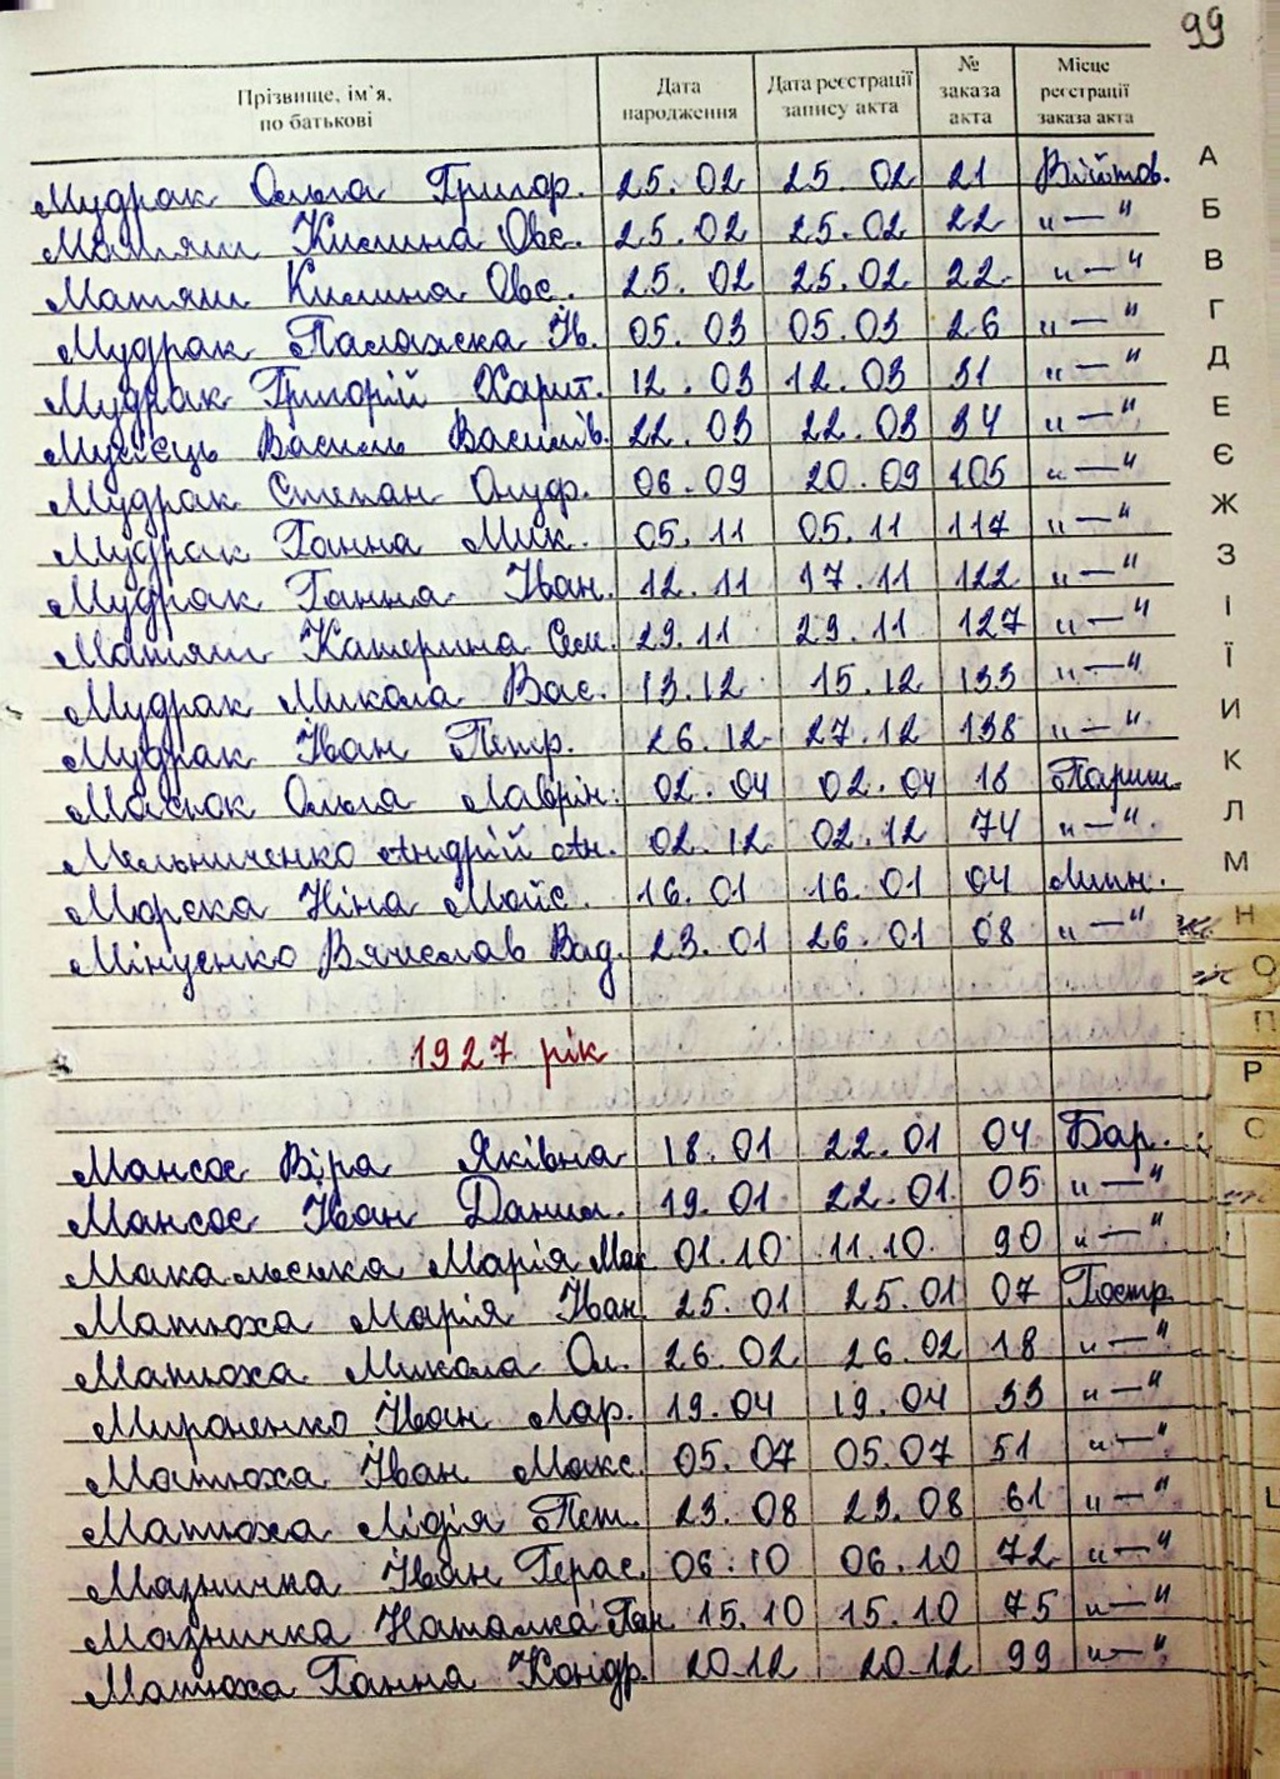 99
Прізвище, ім'я, по батькові Дата народження Дата реєстрації запису акта № заказа акта Місце реєстрації заказа акта
Мудрак Ольга Григор. 25.02 25.02 21 Війтов.
Матяш Килина Овс. 25.02 25.02 22 "—"
Матяш Килина Овс. 25.02 25.02 22 "—"
Мудрак Палажска Ів. 05.03 05.03 26 "—"
Мудрак Григорій Харит. 12.03 12.03 31 "—"
Василь Василів. 22.03 22.03 34 "—"
Мудрак Степан Онуф. 06.09 20.09 105 "—"
Мудрак Ганна Мик. 05.11 05.11 117 "—"
Мудрак Ганна Іван. 12.11 17.11 122 "—"
Матяш Катерина Сем. 29.11 29.11 127 "—"
Мудрак Микола Вас. 13.12 15.12 133 "—"
Мудрак Іван Петр. 26.12 27.12 138 "—"
Масюк Ольга Лаврін. 02.04 02.04 18 Париш.
Мельниченко Андрій Ан. 02.12 02.12 74 "—".
Морска Ніна Мойс. 16.01 16.01 04 Липн.
Мінуенко Вячеслав Вад. 23.01 26.01 08 "—"
1927 рік
Мансос Віра Яківна 18.01 22.01 04 Бар.
Мансос Іван Данил. 19.01 22.01 05 "—"
Макальська Марія Мак 01.10 11.10 90 "—"
Матюха Марія Іван 25.01 25.01 07 Гостр.
Матюха Микола Ол. 26.02 26.02 18 "—"
Мироненко Іван Лар. 19.04 19.04 33 "—"
Матюха Іван Макс. 05.07 05.07 51 "—"
Матюха Лідія Пет. 23.08 23.08 61 "—"
Мазничка Іван Герас. 06.10 06.10 72 "—"
Мазничка Наталка Пан 15.10 15.10 75 "—"
Матюха Ганна Кондр. 20.12 20.12 99 "—"
А
Б
В
Г
Д
Е
Є
Ж
З
І
Ї
И
К
Л
М
Н
О
П
Р
С